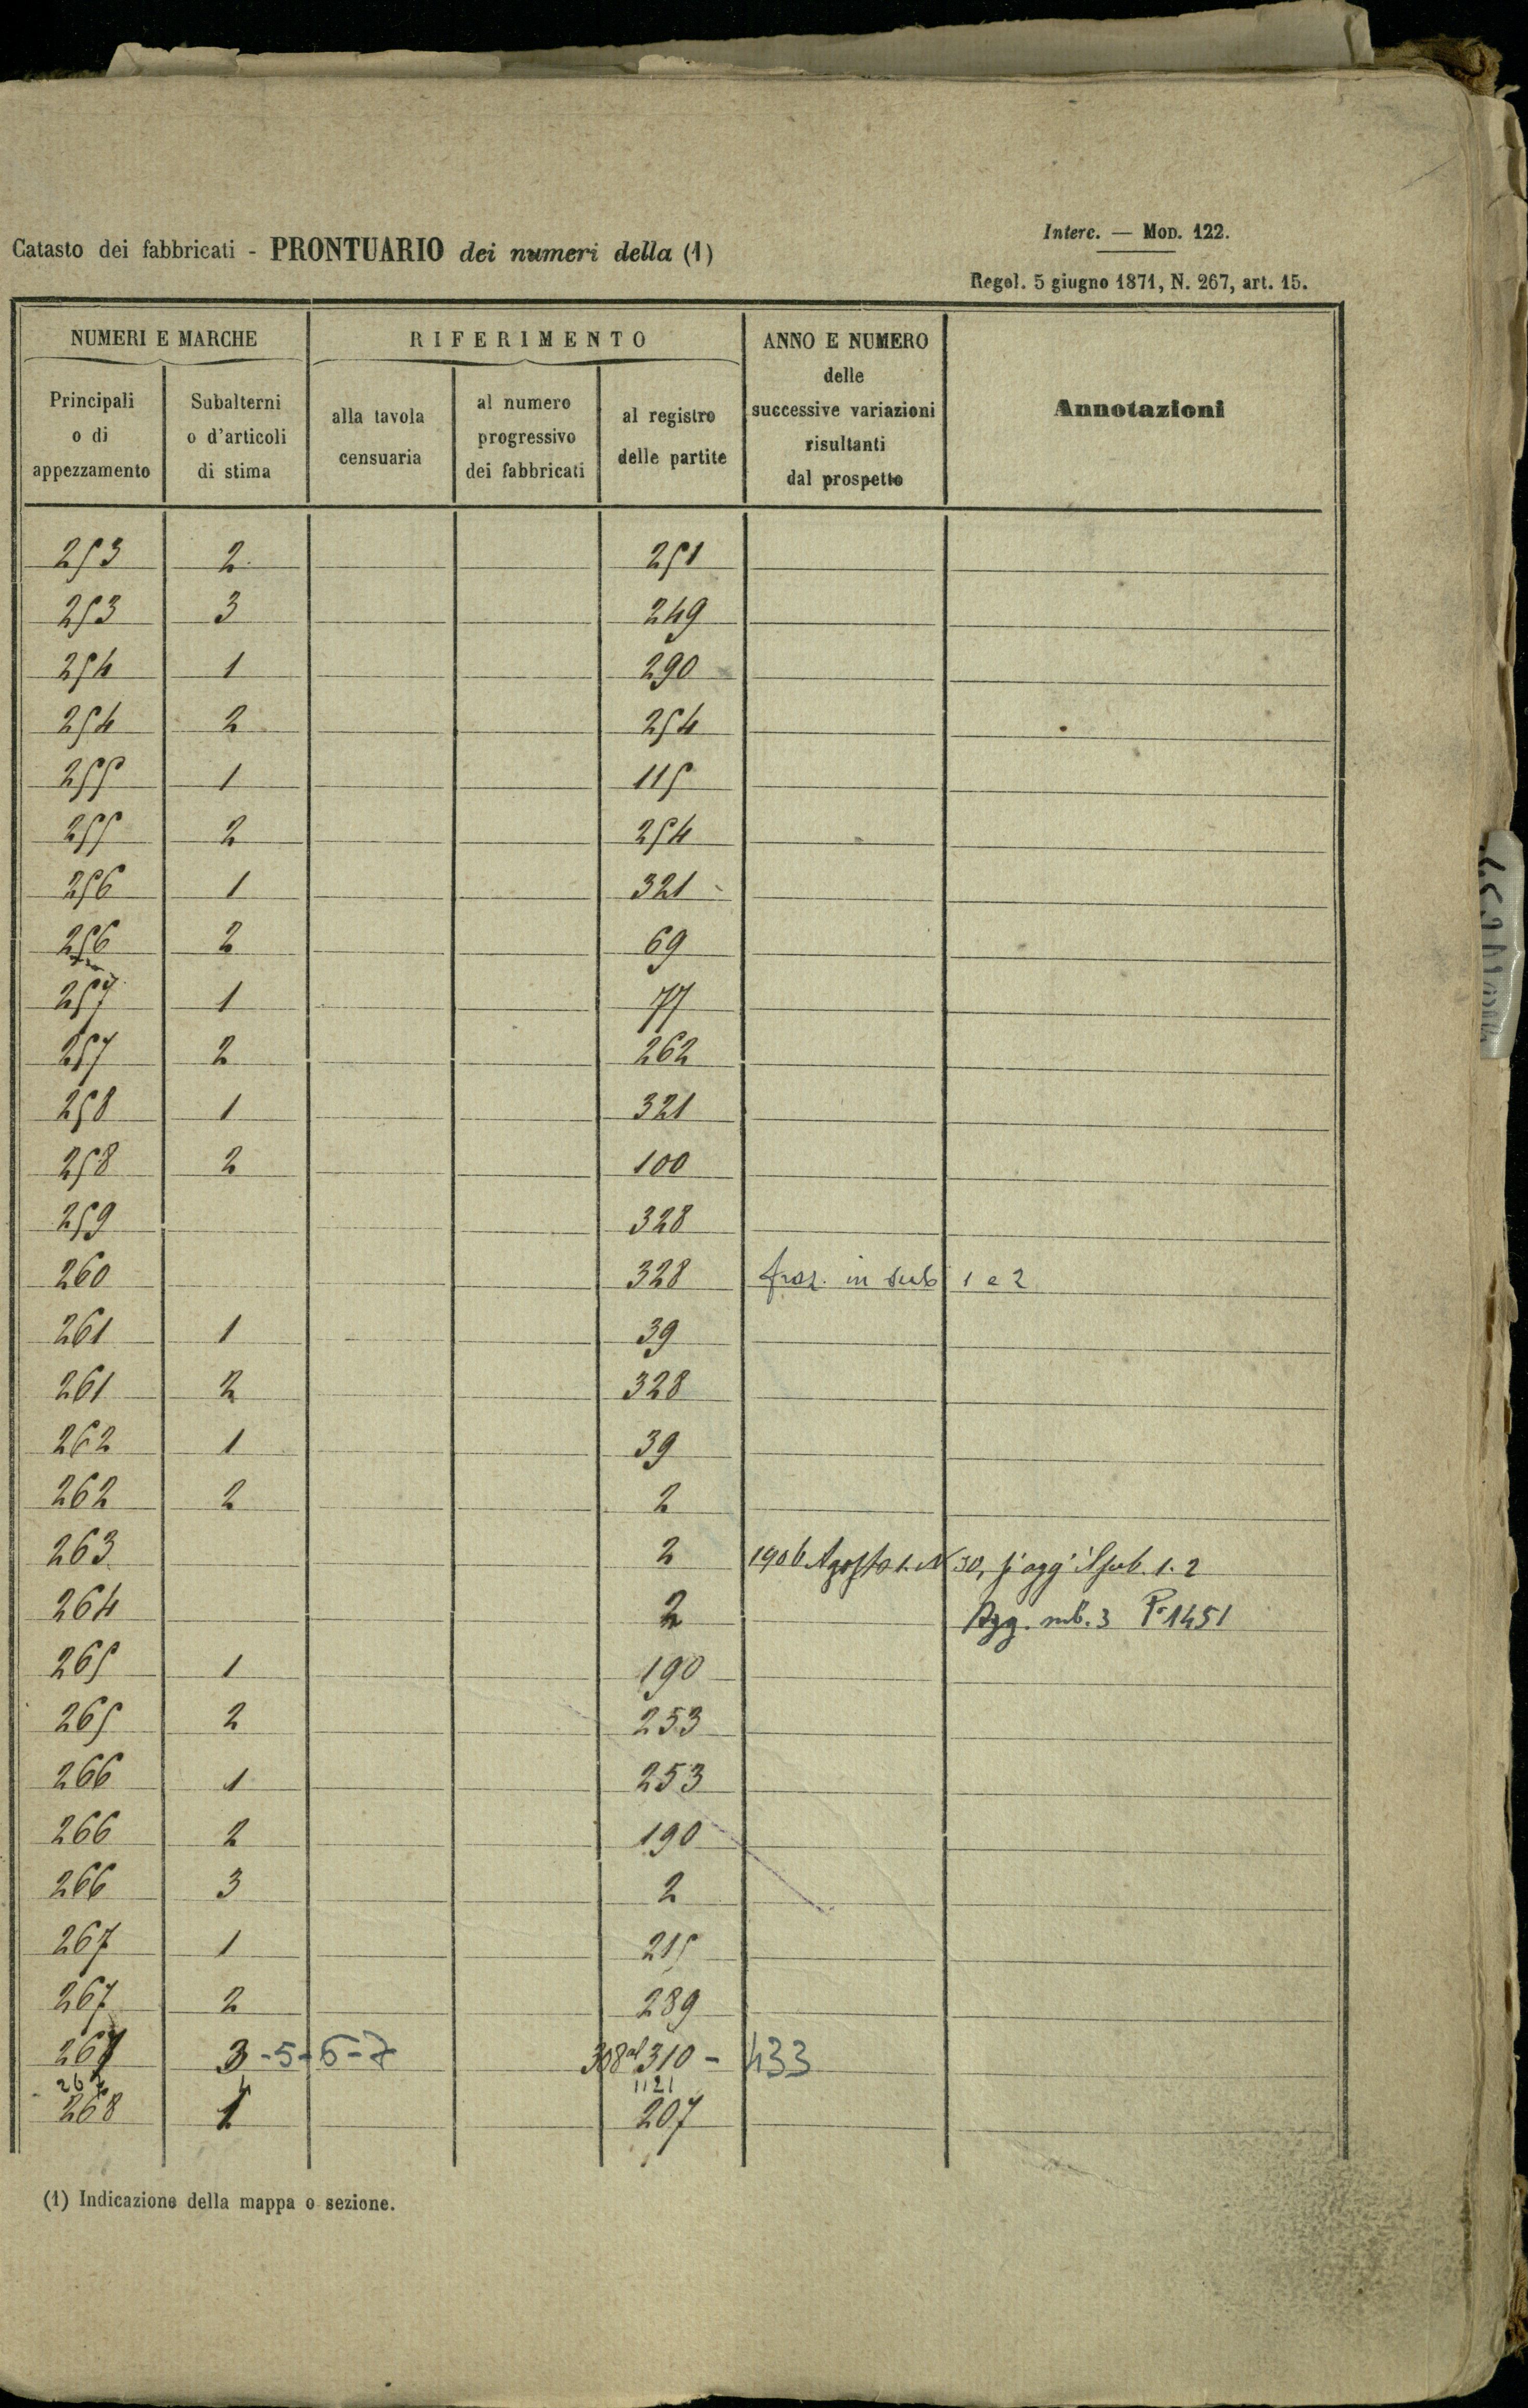 Interc. — Mod. 122.
Catasto dei fabbricati - PRONTUARIO dei numeri della (1)
Regol. 5 giugno 1871, N. 267, art. 15.
NUMERI E MARCHE
RIFERIMENTO
ANNO E NUMERO
delle
successive variazioni
risultanti
dal prospetto
Annotazioni
Principali
o di
appezzamento
Subalterni
o d'articoli
di stima
alla tavola
censuaria
al numero
progressivo
dei fabbricati
al registro
delle partite
253 2 251
253 3 249
254 1 290
254 2 254
255 1 115
255 2 254
256 1 321
256 2 69
257 1 77
257 2 262
258 1 321
258 2 100
259 328
260 328 fraz. in sub 1 e 2
261 1 39
261 2 328
262 1 39
262 2 2
263 2 1906 Agosto 1. N 30, si agg. il sub. 1. 2
264 2 Agg. sub. 3 P. 1451
265 1 190
265 2 253
266 1 253
266 2 190
266 3 2
267 1 215
267 2 289
267 3-5-6-7 308 310 - 433
267 4 1121
268 1 207
(1) Indicazione della mappa o sezione.